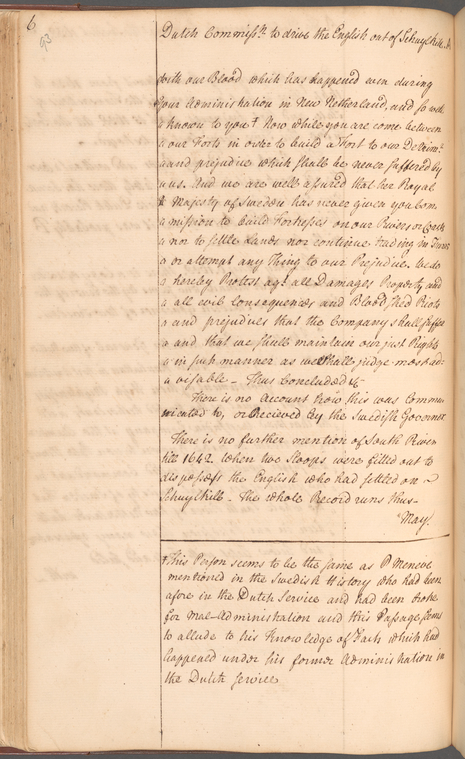 6
93
Dutch Commissrs to drive the English out of Schuylkill &
with our Blood which has happened even during
your Administration in New Netherland, and so well
a known to you † Now while you are come between
a our Forts in order to build a Fort to our Detrimt
a and prejudice which shall be never suffered by
a us. And we are well assured that her Royal
a Majesty of Sweden has never given you Com
a mission to build Fortresses on our Rivers or Coasts
a nor to settle Lands nor continue trading in Furrs
a or attempt any Thing to our Prejudice. We do
a hereby Protest agt all Damages Property and
a all evil Consequences and Blood Shed Riots
a and prejudices that the Company shall suffer
a and that we shall maintain our just Rights
a in such manner as we shall judge most ad:
a visable _ Thus Concluded &c
There is no Account how this was commu
nicated to, or Recieved by the Swedish Governor
There is no further mention of South River
till 1642 when two Sloops were fitted out to
dispossess the English who had settled on
Schuylkill _ The whole Record runs thus _
"May.
†This Person seems to be the same as P Menewe
mentioned in the Swedish History who had been
afore in the Dutch Service and had been broke
for Mal-Administration and this Passage seems
to allude to his Knowledge of Facts which had
happened under his former Administration in
the Dutch Service